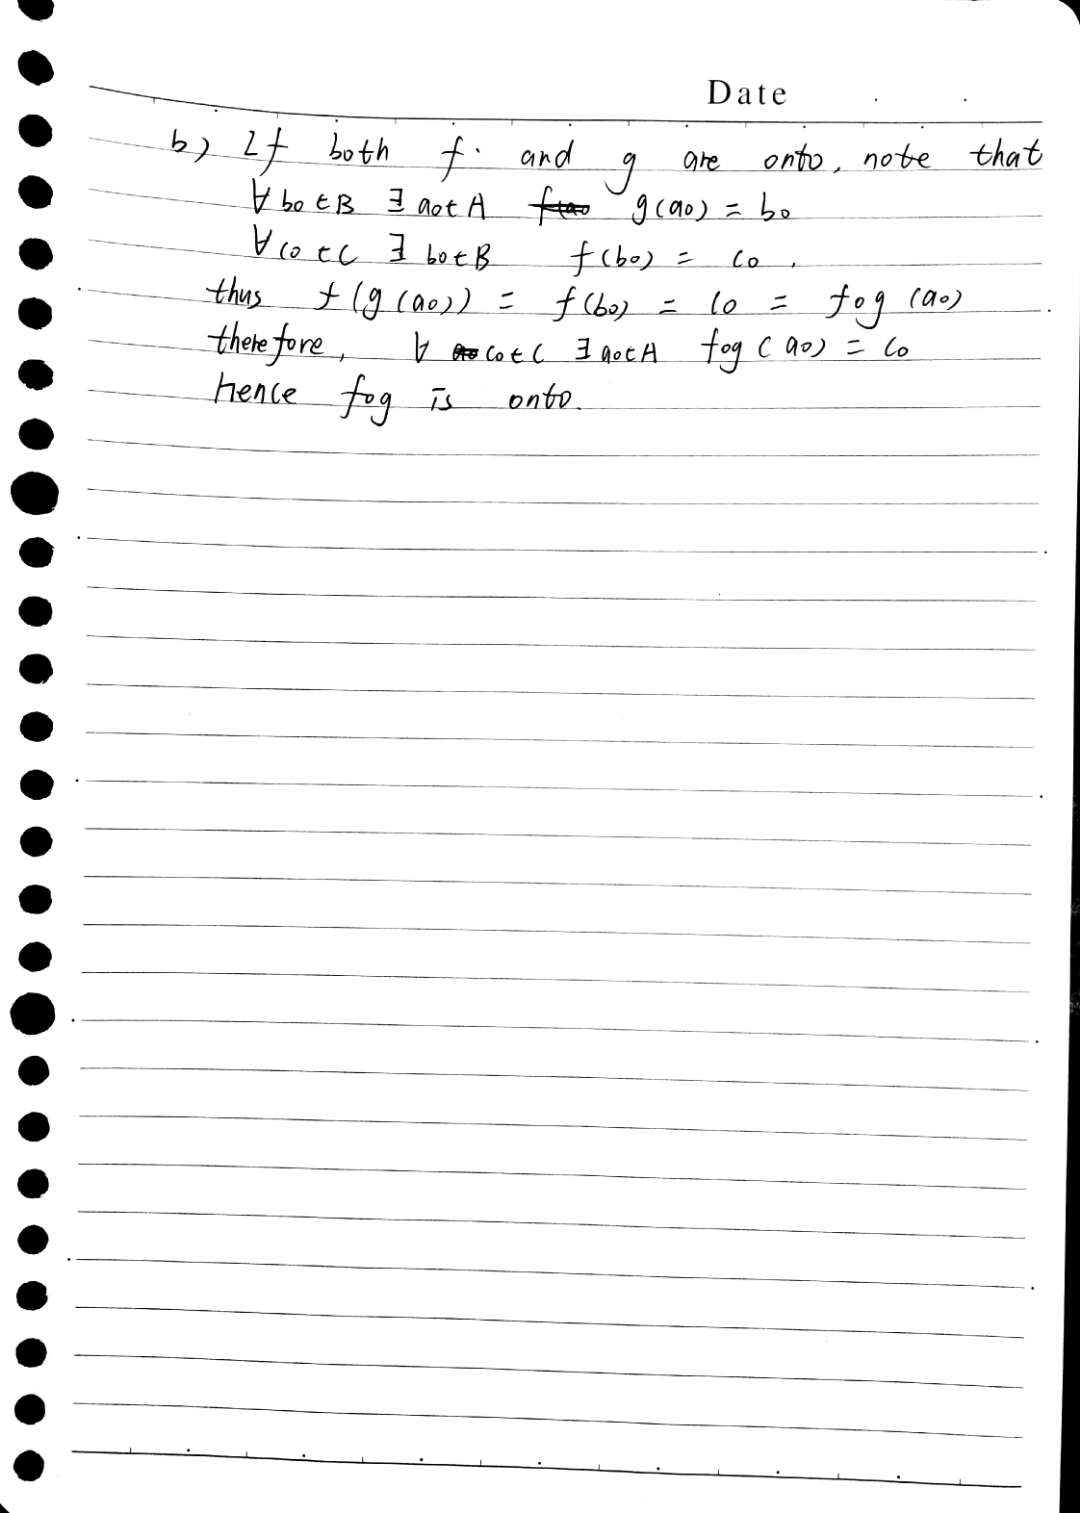 Date
b) If both f and g are onto, note that
∀ b0 ∈ B ∃ a0 ∈ A g(a0) = b0
∀ c0 ∈ C ∃ b0 ∈ B f(b0) = c0.
thus f(g(a0)) = f(b0) = c0 = fog(a0)
therefore, ∀ c0 ∈ C ∃ a0 ∈ A fog(a0) = c0
hence fog is onto.